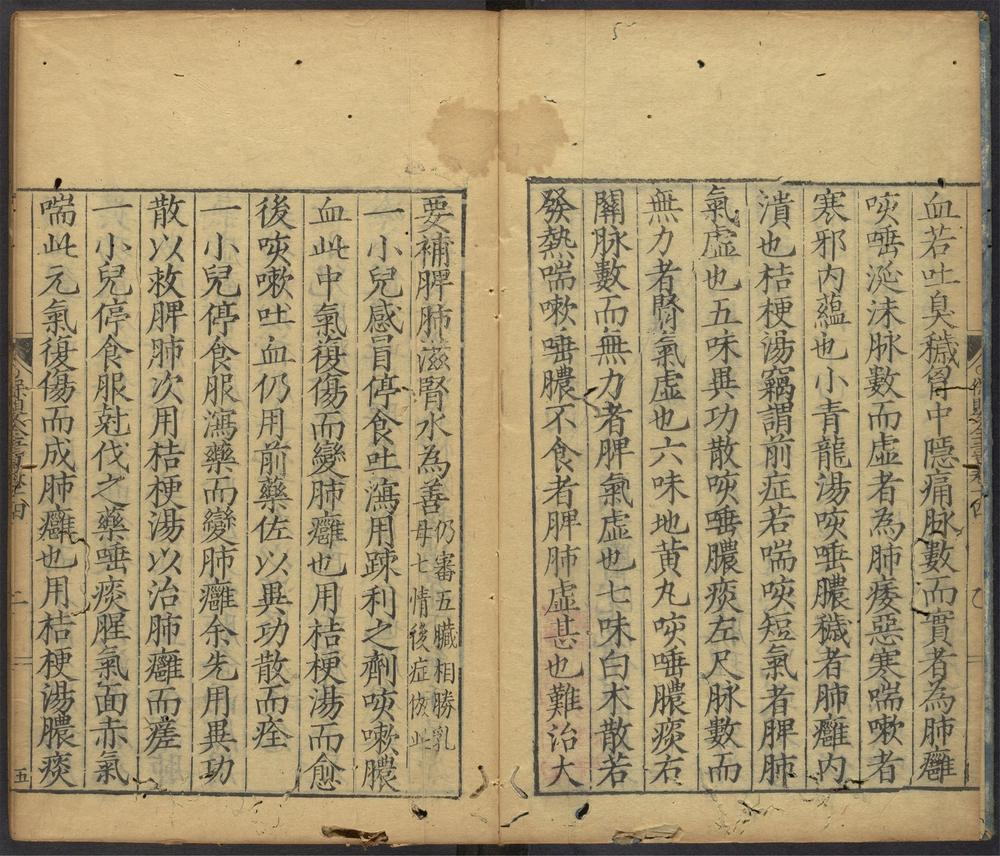 血若吐臭穢胷中隱痛脉數而實者為肺癰
咳唾涎沫脉數而虛者為肺痿惡寒喘嗽者
寒邪内蘊也小青龍湯咳唾膿穢者肺癰内
潰也桔梗湯竊謂前症若喘咳短氣者脾肺
氣虛也五味異功散咳唾膿痰左尺脉數而
無力者腎氣虛也六味地黄丸咳唾膿痰右
關脉數而無力者脾氣虛也七味白木散若
發熱喘嗽唾膿不食者脾肺虛甚也難治大
要補脾肺滋腎水為善仍審五臟相勝乳母七情後症倣此
一小兒感冒停食吐瀉用疎利之劑咳嗽膿
血此中氣復傷而變肺癰也用桔梗湯而愈
後咳嗽吐血仍用前藥佐以異功散而痊
一小兒停食服瀉藥而變肺癰余先用異功
散以救脾肺次用桔梗湯以治肺癰而瘥
一小兒停食服尅伐之藥唾痰腥氣面赤氣
喘此元氣復傷而成肺癰也用桔梗湯膿痰
二
五